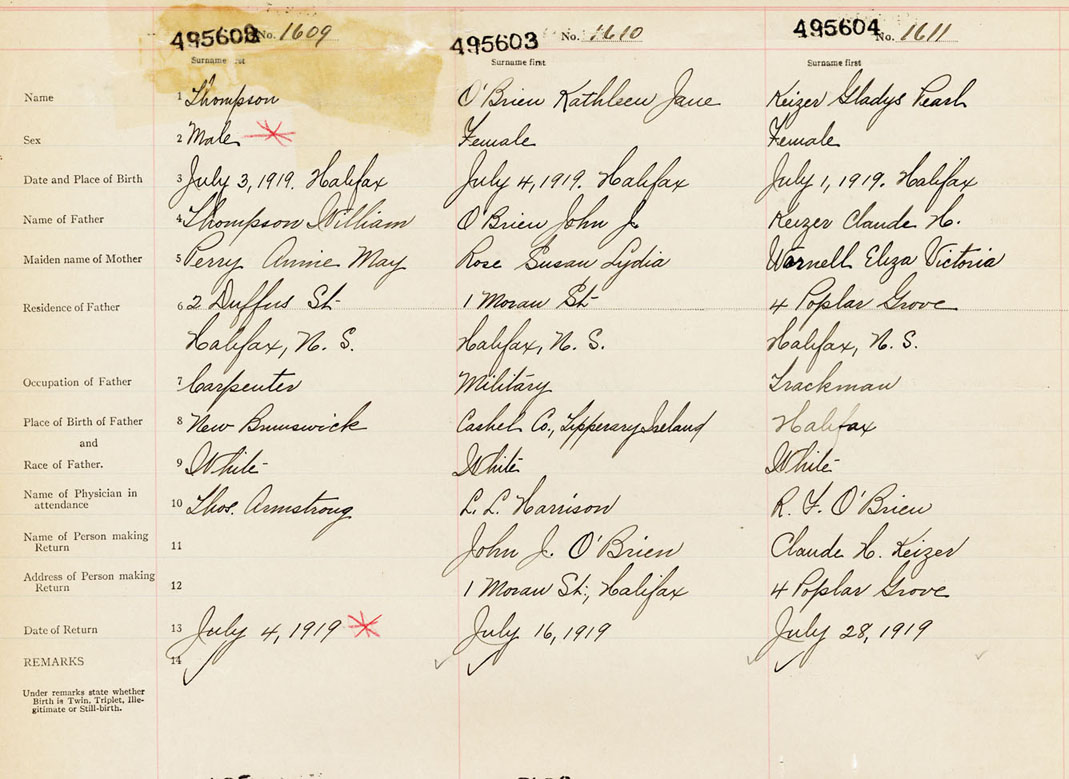 495602 No. 1609 495603 No. 1610 495604 No. 1611
Surname first Surname first Surname first
Name 1 Thompson O'Brien Kathleen Jane Keizer Gladys Pearl
Sex 2 Male Female Female
Date and Place of Birth 3 July 3, 1919. Halifax July 4, 1919. Halifax July 1, 1919. Halifax
Name of Father 4 Thompson William O'Brien John J. Keizer Claude H.
Maiden name of Mother 5 Perry Annie May Rose Susan Lydia Warnell Eliza Victoria
Residence of Father 6 2 Duffus St 1 Moran St 4 Poplar Grove
Halifax, N. S. Halifax, N. S. Halifax, N. S.
Occupation of Father 7 Carpenter Military Trackman
Place of Birth of Father 8 New Brunswick Cashel Co., Tipperary Ireland Halifax
and
Race of Father. 9 White White White
Name of Physician in
attendance 10 Thos. Armstrong L. L. Harrison R. F. O'Brien
Name of Person making
Return 11 John J. O'Brien Claude H. Keizer
Address of Person making
Return 12 1 Moran St., Halifax 4 Poplar Grove
Date of Return 13 July 4, 1919 July 16, 1919 July 28, 1919
REMARKS 14
Under remarks state whether
Birth is Twin, Triplet, Ille-
gitimate or Still-birth.